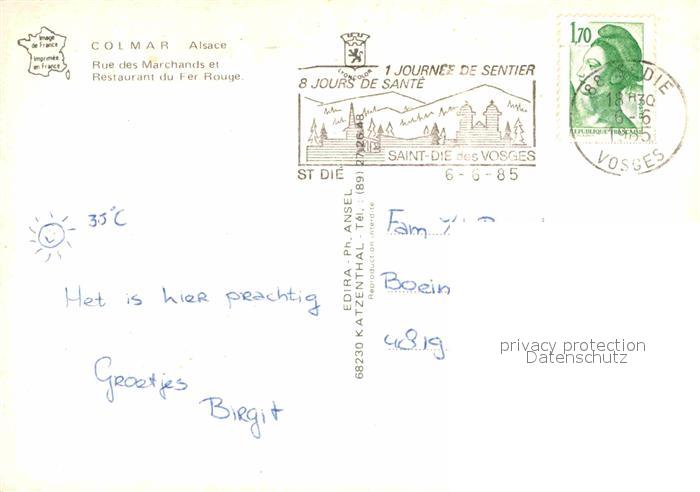 Image
de France
Imprimée
en France
COLMAR Alsace
Rue des Marchands et
Restaurant du Fer Rouge.
1 JOURNÉE DE SENTIER
8 JOURS DE SANTÉ
SAINT-DIÉ des VOSGES
ST DIÉ
6-6-85
1,70
REPUBLIQUE FRANÇAISE
88 ST DIÉ
18H30
6-6
1985
VOSGES
EDIRA - Ph. ANSEL
68230 KATZENTHAL - Tél. : (89) 27 26 48
Reproduction interdite
35°C
Het is hier prachtig
Groetjes
Birgit
Fam
privacy protection
Datenschutz